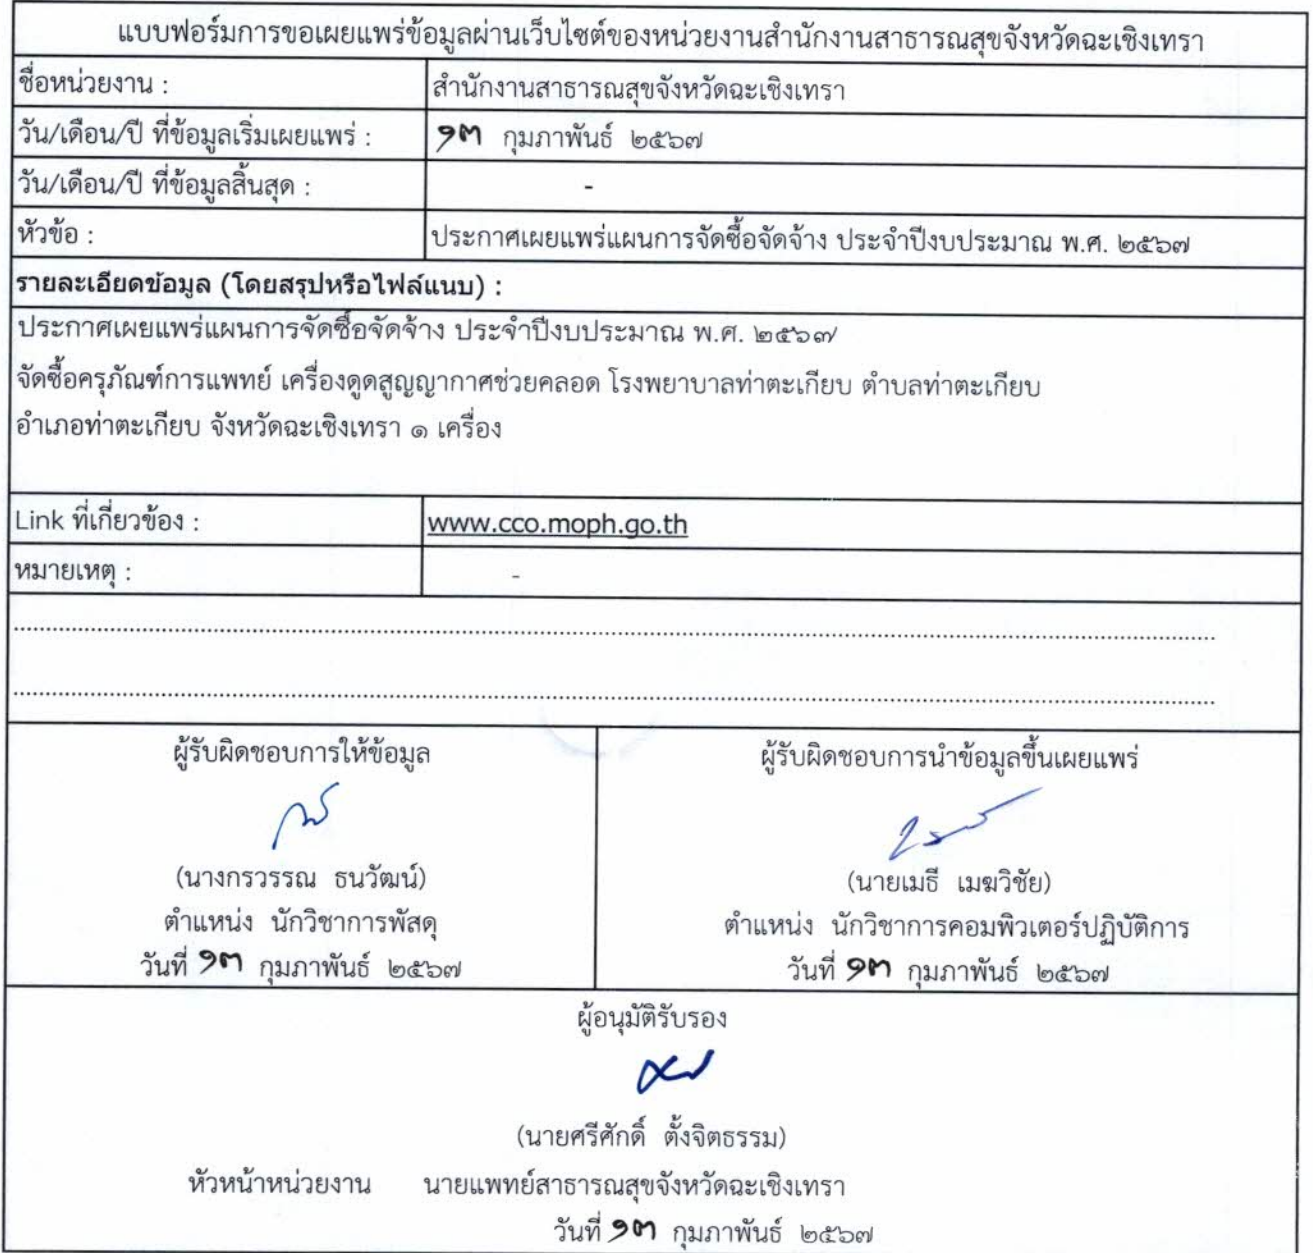 แบบฟอร์มการขอเผยแพร่ข้อมูลผ่านเว็บไซต์ของหน่วยงานสำนักงานสาธารณสุขจังหวัดฉะเชิงเทรา
ชื่อหน่วยงาน : สำนักงานสาธารณสุขจังหวัดฉะเชิงเทรา
วัน/เดือน/ปี ที่ข้อมูลเริ่มเผยแพร่ : ๑๓ กุมภาพันธ์ ๒๕๖๗
วัน/เดือน/ปี ที่ข้อมูลสิ้นสุด : -
หัวข้อ : ประกาศเผยแพร่แผนการจัดซื้อจัดจ้าง ประจำปีงบประมาณ พ.ศ. ๒๕๖๗
รายละเอียดข้อมูล (โดยสรุปหรือไฟล์แนบ) :
ประกาศเผยแพร่แผนการจัดซื้อจัดจ้าง ประจำปีงบประมาณ พ.ศ. ๒๕๖๗
จัดซื้อครุภัณฑ์การแพทย์ เครื่องดูดสูญญากาศช่วยคลอด โรงพยาบาลท่าตะเกียบ ตำบลท่าตะเกียบ
อำเภอท่าตะเกียบ จังหวัดฉะเชิงเทรา ๑ เครื่อง
Link ที่เกี่ยวข้อง : www.cco.moph.go.th
หมายเหตุ : -
ผู้รับผิดชอบการให้ข้อมูล
(นางกรวรรณ ธนวัฒน์)
ตำแหน่ง นักวิชาการพัสดุ
วันที่ ๑๓ กุมภาพันธ์ ๒๕๖๗
ผู้รับผิดชอบการนำข้อมูลขึ้นเผยแพร่
(นายเมธี เมฆวิชัย)
ตำแหน่ง นักวิชาการคอมพิวเตอร์ปฏิบัติการ
วันที่ ๑๓ กุมภาพันธ์ ๒๕๖๗
ผู้อนุมัติรับรอง
(นายศรีศักดิ์ ตั้งจิตธรรม)
หัวหน้าหน่วยงาน นายแพทย์สาธารณสุขจังหวัดฉะเชิงเทรา
วันที่ ๑๓ กุมภาพันธ์ ๒๕๖๗